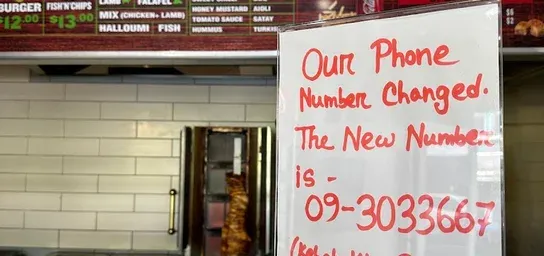 BURGER FISH'N'CHIPS
$12.00 $13.00
LAMB FALAFEL
MIX (CHICKEN+ LAMB)
HALLOUMI FISH
HONEY MUSTARD AIOLI
TOMATO SAUCE SATAY
HUMMUS
Our Phone
Number Changed.
The New Number
is -
09-3033667